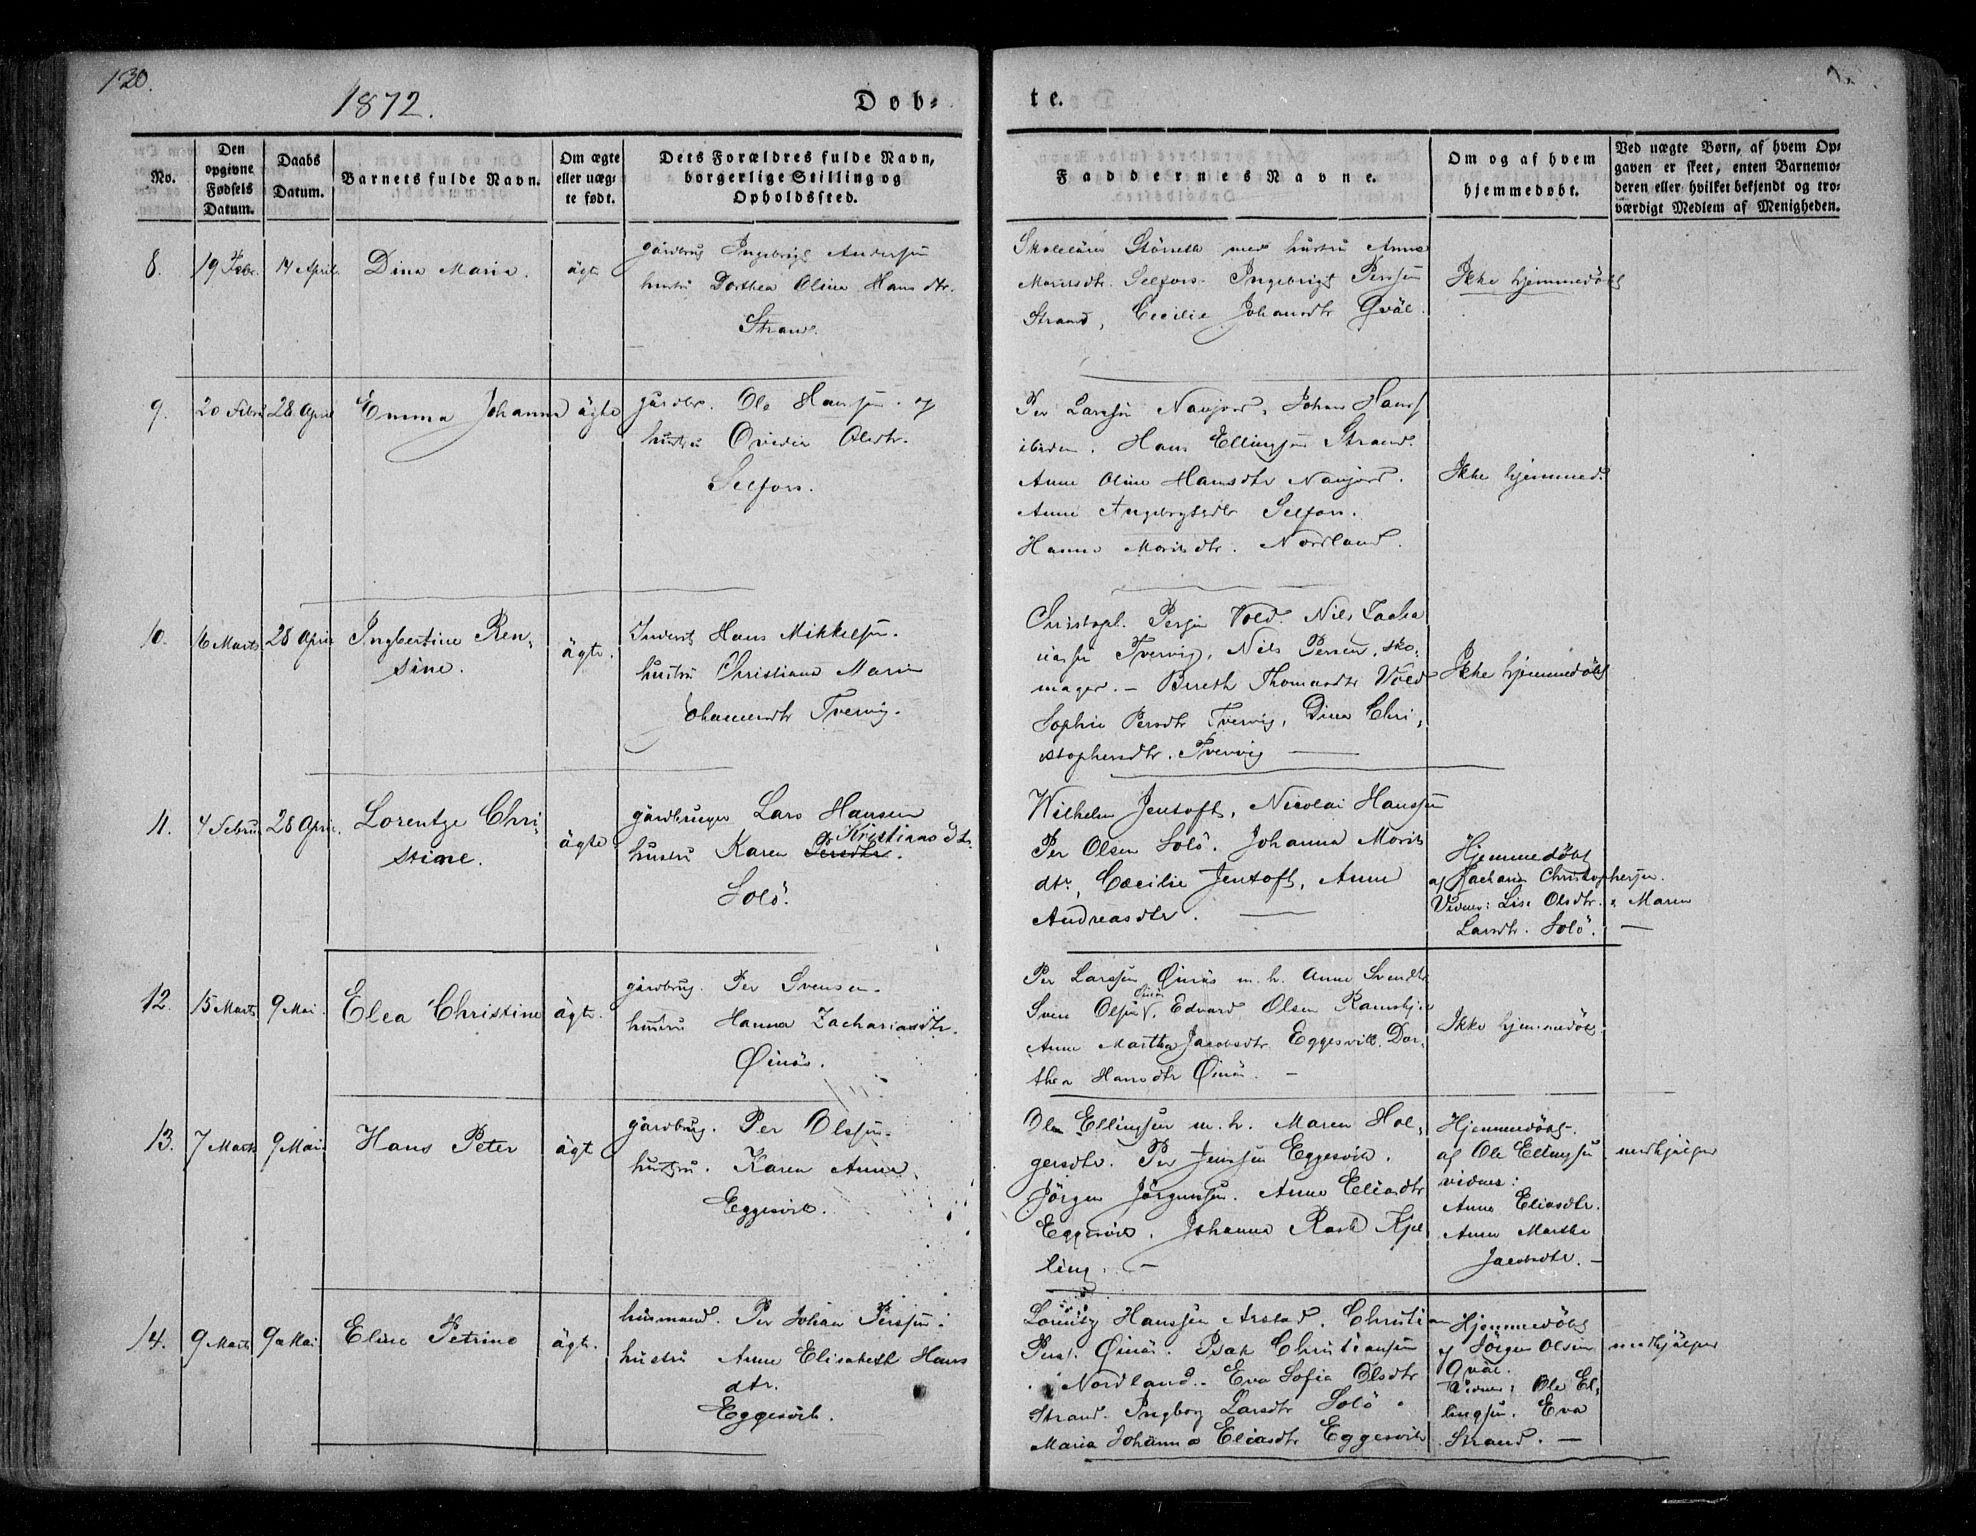 130.
1872.
Døb-
te.
No.
Den opgivne Fødsels Datum.
Daabs Datum.
Barnets fulde Navn.
Om ægte eller uægte født.
Dets Forældres fulde Navn, borgerlige Stilling og Opholdssted.
Faddernes Navne.
Om og af hvem hjemmedøbt.
Ved uægte Børn, af hvem Opgaven er skeet, enten Barnemoderen eller hvilket bekjendt og troværdigt Medlem af Menigheden.
8.
19 Febr.
14 April.
Dina Maria.
ägte
gårdbrug Ingebrigt Andersen
hustru Dorthea Olina Hansdtr.
Strand.
Skolelärer Störseth med hustru Anna
Moritsdtr. Selfors. Ingebrigt Perssen
Strand, Cecilie Johansdtr Qväl.
Ikke hjemmedöbt
9.
20 Febru
28 April
Emma Johanna
ägte
gårdbr. Ole Hanssen og
hustru Ovedia Olsdtr.
Selfors.
Per Larssen Naujord, Johan Hanss
ibiden. Hans Ellingsen Strand.
Anne Oline Hansdtr Naujord.
Anne Ingebrigtsdtr Selfors.
Hanna Moritsdtr. Nordland.
Ikke hjemmed.
10.
16 Marts
28 April
Ingbertine Ren-
sine.
ägte.
Inderst Hans Mikkelsen.
hustru Christiane Marie
Johannesdtr Tvervig.
Christoph. Persen Vold. Nils Zacha
riassen Tvervig, Nils Persen, sko-
mager. - Bereth Thomasdtr Vold
Sophie Persdtr Tvervig, Dina Chri-
stophersdtr. Tvervig
Ikke hjemmedöbt
11.
4 Februr
28 April.
Lorentze Chri-
stine.
ägte
gårdbruger Lars Hansen
Kristiansdtr.
hustru Karen Persdtr.
Solö.
Wilhelm Jentoft, Nicolai Hanssen
Per Olsen Solö. Johanna Morits
dtr, Cæcilie Jentoft, Anne
Andreasdtr.
Hjemmedöbt
af Zacharias Christophersen.
Vidner: Lise Olsdtr. & Maren
Larsdtr. Solö.
12.
15 Marts
9 Mai.
Elea Christine
ägte.
gårdbrug. Per Svensen.
hustru Hanna Zachariasdtr.
Öinäs.
Per Larssen Öinäs m. h. Anne Svendtr
Öinäs
Sven Olsen, Edvard Olsen Ramskje
Anne Martha Jacobsdtr Eggesvik. Dor-
thea Hansdtr Öinäs. -
Ikke hjemmedöbt.
13.
7 Marts
9 Mai
Hans Peter
ägt
gårdbrug. Per Olssen.
hustru. Karen Anna.
Eggesvik.
Ole Ellingsen m. h. Maren Hol-
gersdtr. Per Jenssen Eggesvik.
Jörgen Jörgensen. Anne Eliasdtr
Eggesvik. Johanna Rask Kjel
ling. -
Hjemmedöbt.
af Ole Ellingsen
vidner:
Anna Eliasdtr.
Anne Martha
Jacobsdtr. -
medhjälper
14.
9 Marts
9 Mai
Eline Petrine
ägte.
husmand. Per Johan Perssen.
hustru Anne Elisabeth Hans
dtr.
Eggesvik.
Hanssen Arstad. Christian
Perss. Öinäs. Isak Christiansen
Nordland. Eva Sofia Olsdtr
Strand. Ingborg Larsdtr Solö.
Maria Johanna Eliasdtr Eggesvik
Hjemmedöbt
af Jörgen Olsen
Qväl.
Vidner: Ole El-
lingsen. Eva
Strand. -
medhjälper